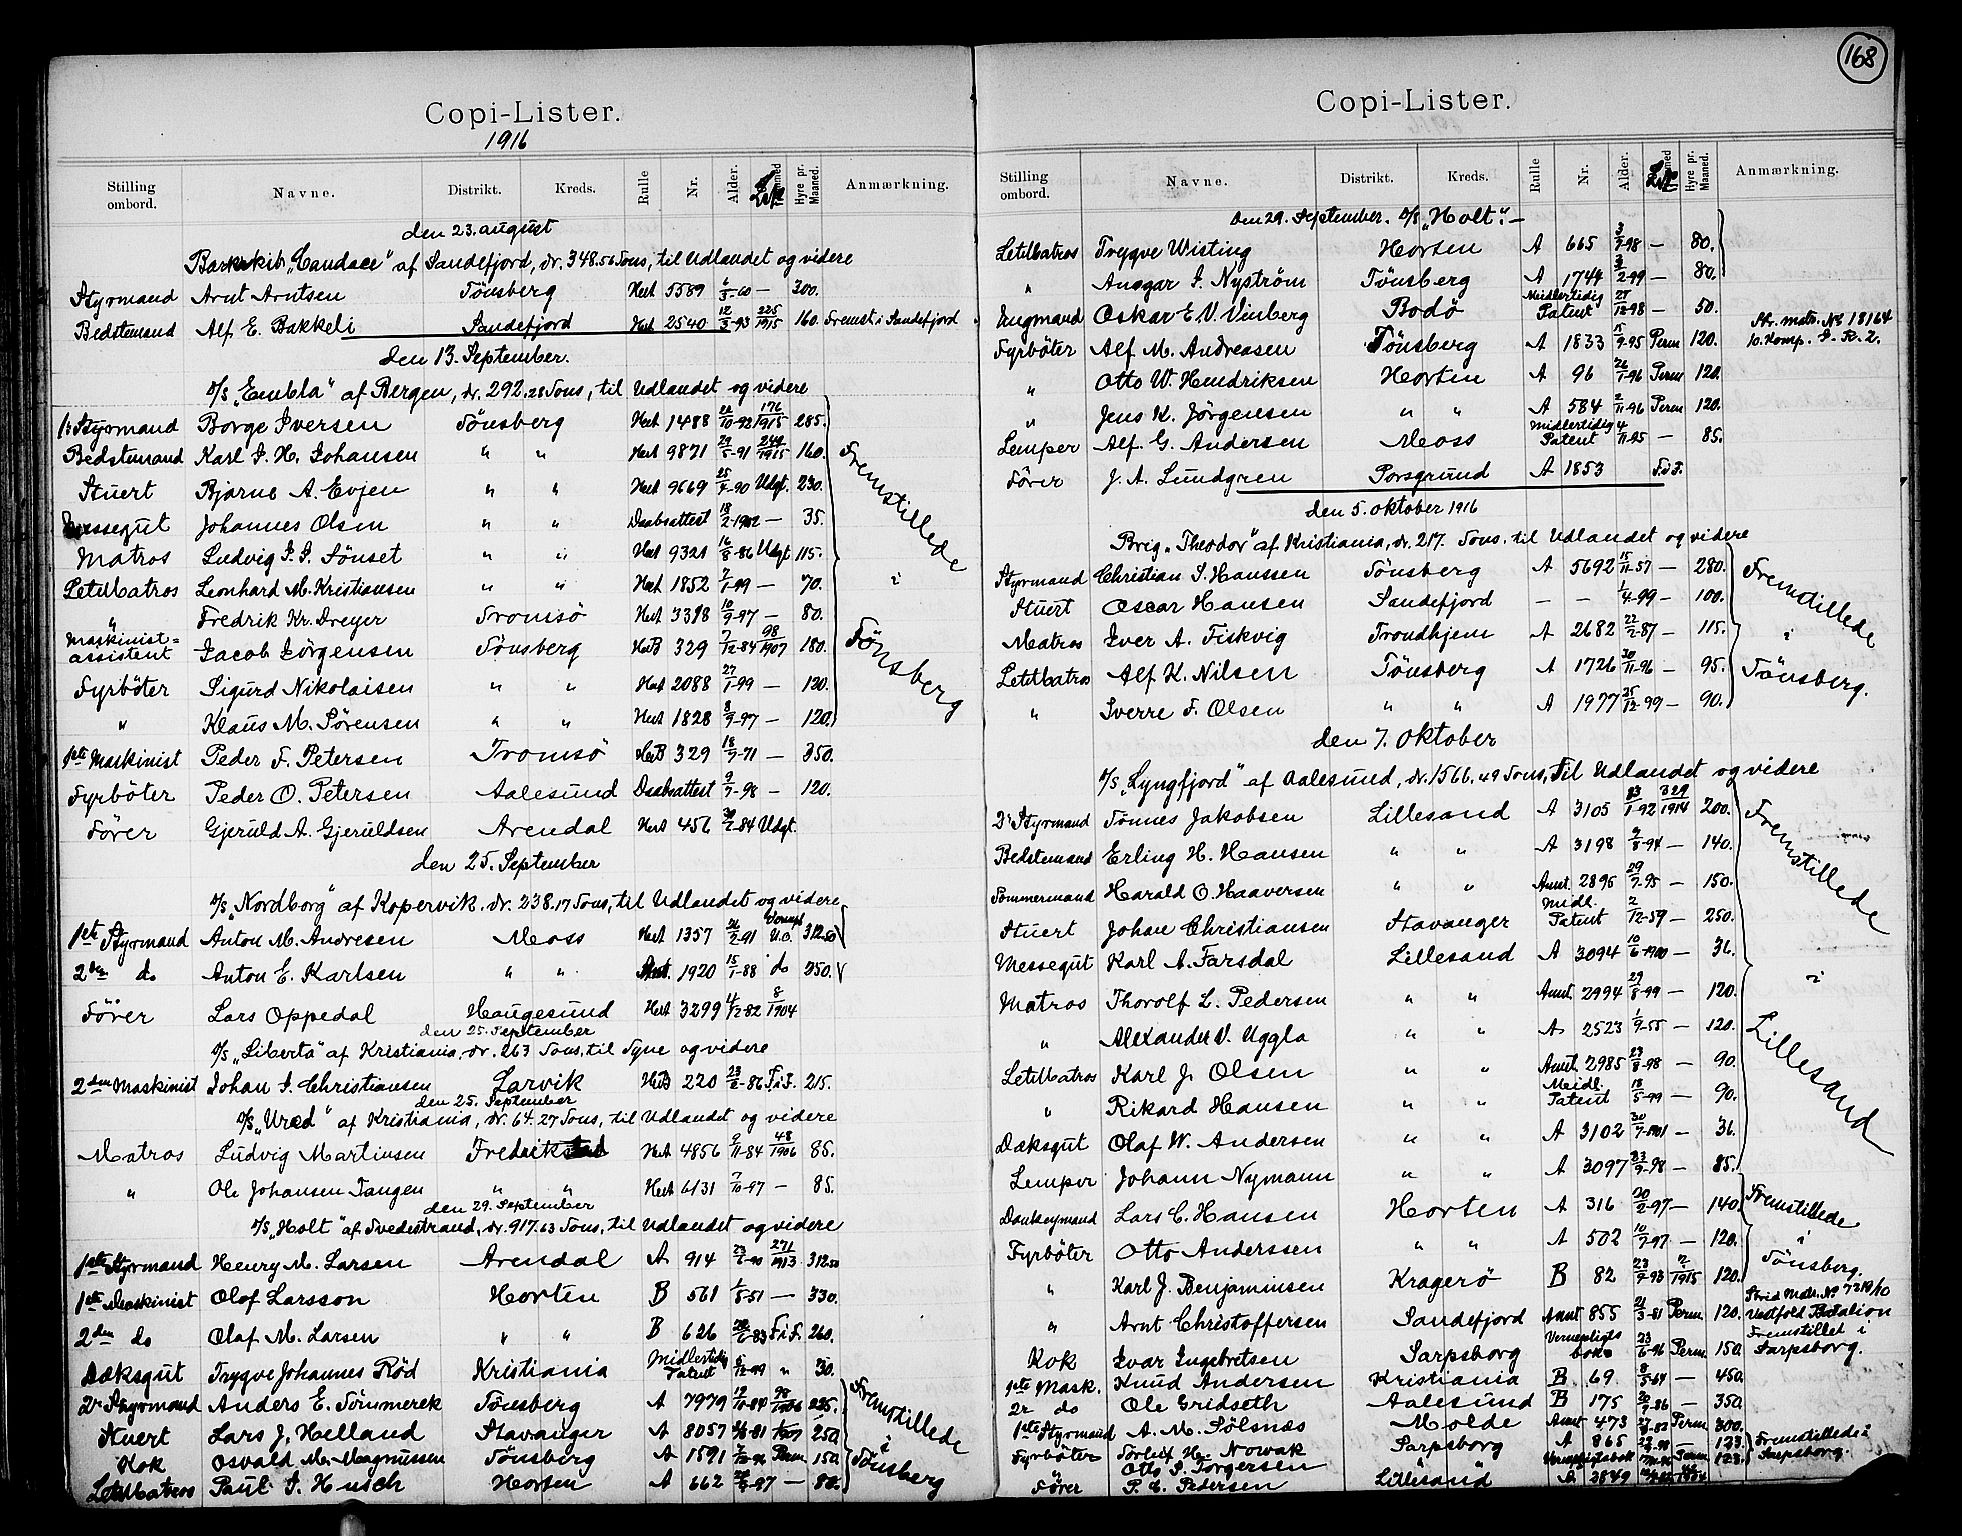 Copi-Lister.
1916
Stilling ombord. Navne. Distrikt. Kreds. Rulle Nr. Alder. Hyre pr. Maaned. Anmærkning.
den 23. august
Barkskib „Candace" af Sandefjord, dr. 348.56 Tons, til Udlandet og videre
Styrmand Arnt Arntsen Tönsberg Hert 5589 6/3-60 — 300.
Bedstemand Alf E. Bakkeli Sandefjord Hert 2540 12/3-93 225/1915 160. Fremst. i Sandefjord
den 13. September.
S/S „Embla" af Bergen, dr. 292.28 Tons, til Udlandet og videre
1ste Styrmand Borge Iversen Tönsberg Hert 1488 22/10-92 176/1915 285.
Bedstemand Karl J. H. Johansen " " Hert 9871 29/5-91 249/1915 160.
Stuert Bjarne A. Evjen " " Hert 9669 25/7-90 Udgt. 230.
Messegut Johannes Olsen " " Daabsattest 18/2-1902 — 35.
Matros Ludvig J. J. Tönset " " Hert 9321 16/8-86 Udgt 115.
LetMatros Leonhard M. Kristiansen " " Hert 1852 7/1-99 — 70.
" Fredrik Kr. Dreyer Tromsö Hert 3318 10/9-97 — 80.
Maskinist=assistent Jacob Jörgensen Tönsberg HertB 329 7/12-84 98/1907 180.
Fyrböter Sigurd Nikolaisen " " Hert 2088 27/1-99 — 120.
" Klaus M. Sörensen " " Hert 1828 8/9-97 — 120.
Fremstillede i Tönsberg
1ste Maskinist Peder F. Petersen Tromsö HertB 329 18/7-71 — 350.
Fyrböter Peder O. Petersen Aalesund Daabsattest 9/7-98 — 120.
Förer Gjeruld A. Gjeruldsen Arendal Hert 456 30/2-84 Udgt.
den 25. September
S/S „Nordborg" af Kopervik, dr. 238.17 Tons, til Udlandet og videre
1ste Styrmand Anton M. Andresen Moss Hert 1357 26/2-91 U.O. 312.50
2den do Anton E. Karlsen " " 1920 15/1-88 do 250.
Förer Lars Oppedal Haugesund Hert 3299 4/12-82 8/1904
den 25. September
S/S „Liberta" af Kristiania, dr. 263 Tons, til Tyne og videre
2den Maskinist Johan J. Christiansen Larvik HertB 220 23/2-86 F.i.F. 215.
den 25. September
M/S „Uræd" af Kristiania, dr. 64.27 Tons, til Udlandet og videre
Matros Ludvig Martinsen Fredrikstad Hert 4856 9/11-84 48/1906 85.
" Ole Johansen Tangen " " Hert 6131 7/10-97 — 85.
den 29. September
S/S „Holt" af Tvedestrand, dr. 917.63 Tons, til Udlandet og videre
1ste Styrmand Henry M. Larsen Arendal A 914 23/6-90 271/1913 312.50
1ste Maskinist Olof Larsson Horten B 561 1/5-51 — 330.
2den do Olaf M. Larsen " " B 626 28/6-83 F.i.F. 260.
Dæksgut Trygve Johannes Röd Kristiania Midlertidig Patent 5/12-99 " 30.
2r Styrmand Anders E. Tömmerek Tönsberg A 7979 19/10-84 98/1906 285.
Stuert Lars J. Helland Stavanger A 8057 250.
Kok Osvald M. Magnussen Tönsberg A 1591 Perm 150.
LetMatros Paul J. Husch Horten A 662 -97 — 80.
Fremstillede i Tönsberg
168
Copi-Lister.
Stilling ombord. Navne. Distrikt. Kreds. Rulle Nr. Alder. Hyre pr. Maaned. Anmærkning.
Den 29. September. S/S „Holt". —
LetMatros Trygve Wisting Horten A 665 3/7-98 — 80.
" Ansgar J. Nyström Tönsberg A 1744 3/2-99 — 80.
Jungmand Oskar E. V. Vinberg Bodö Midlertidig Patent 28/12-98 — 50.
Fyrböter Alf M. Andreasen Tönsberg A 1833 15/9-95 Perm 120. Str. matr. No 18164 10. Komp. I. R. 2.
" Otto W. Hendriksen Horten A 96 26/1-96 Perm 120.
" Jens K. Jörgensen " " A 584 2/11-96 Perm 120.
Lemper Alf. G. Andersen Moss Midlertidig Patent 4/11-95 — 85.
Förer J. A. Lundgren Porsgrund A 1853 F.i.F.
den 5. oktober 1916
Brig „Theodor" af Kristiania, dr. 217. Tons. til Udlandet og videre
Styrmand Christian J. Hanssen Tönsberg A 5692 15/11-57 — 280.
Stuert Oscar Hansen Sandefjord — — 1/4-99 — 100.
Matros Iver A. Fiskvig Trondhjem A 2682 22/2-87 — 115.
LetMatros Alf K. Nilsen Tönsberg A 1726 30/11-96 — 95.
" Sverre F. Olsen " " A 1977 25/12-99 — 90.
Fremstillede i Tönsberg.
den 7. oktober
S/S „Lyngfjord" af Aalesund, dr. 1566.49 Tons, Til Udlandet og videre
2r Styrmand Tönnes Jakobsen Lillesand A 3105 23/1-92 329/1914 200.
Bedstemand Erling H. Hansen " " A 3198 9/8-94 — 140.
Tömmermand Harald O. Haaversen " " Annt. 2896 29/7-95 — 150.
Stuert Johan Christiansen Stavanger Midl. Patent 2/12-59 — 250.
Messegut Karl A. Farsdal Lillesand A 3094 10/6-1900 — 36.
Matros Thorolf L. Pedersen " " Annt. 2994 29/8-99 — 120.
" Alexander V. Uggla " " A 2523 1/9-55 — 120.
LetMatros Karl J. Olsen " " Annt. 2985 23/8-98 — 90.
" Rikard Hansen " " Midl. Patent 18/5-99 — 90.
Dæksgut Olaf W. Andersen " " A 3102 30/7-1901 — 36.
Lemper Johann Nymann " " A 3097 23/9-98 — 85.
Fremstillede i Lillesand
Donkeymand Lars C. Hansen Horten A 316 20/2-97 — 140.
Fyrböter Otto Anderssen " " A 502 10/7-97 — 120.
" Karl J. Benjaminsen Kragerö B 82 23/9-93 7/1915 120.
Fremstillede i Tönsberg.
" Arnt Christoffersen Sandefjord Annt 855 21/3-81 Perm. 120. Strid Matr. No 7218/10 Vestfold Batalion
Kok Ivar Ingebretsen Sarpsborg Vernepligts bok 23/6-96 Perm 150. Fremstillet i Sarpsborg.
1ste Mask. Knud Andersen Kristiania B. 69. 8/5-64 — 450.
2r do Ole Gridseth Aalesund B 175 -86 — 350.
1ste Styrmand A. M. Sölsnæs Molde Annt 473 Perm 300.
Fyrböter H. Nowak Sarpsborg A 865 123.
Otto J. Torgersen Vernepligtsbok 123. Fremstillede i Sarpsborg.
Förer P. C. Pedersen Lillesand A 3849